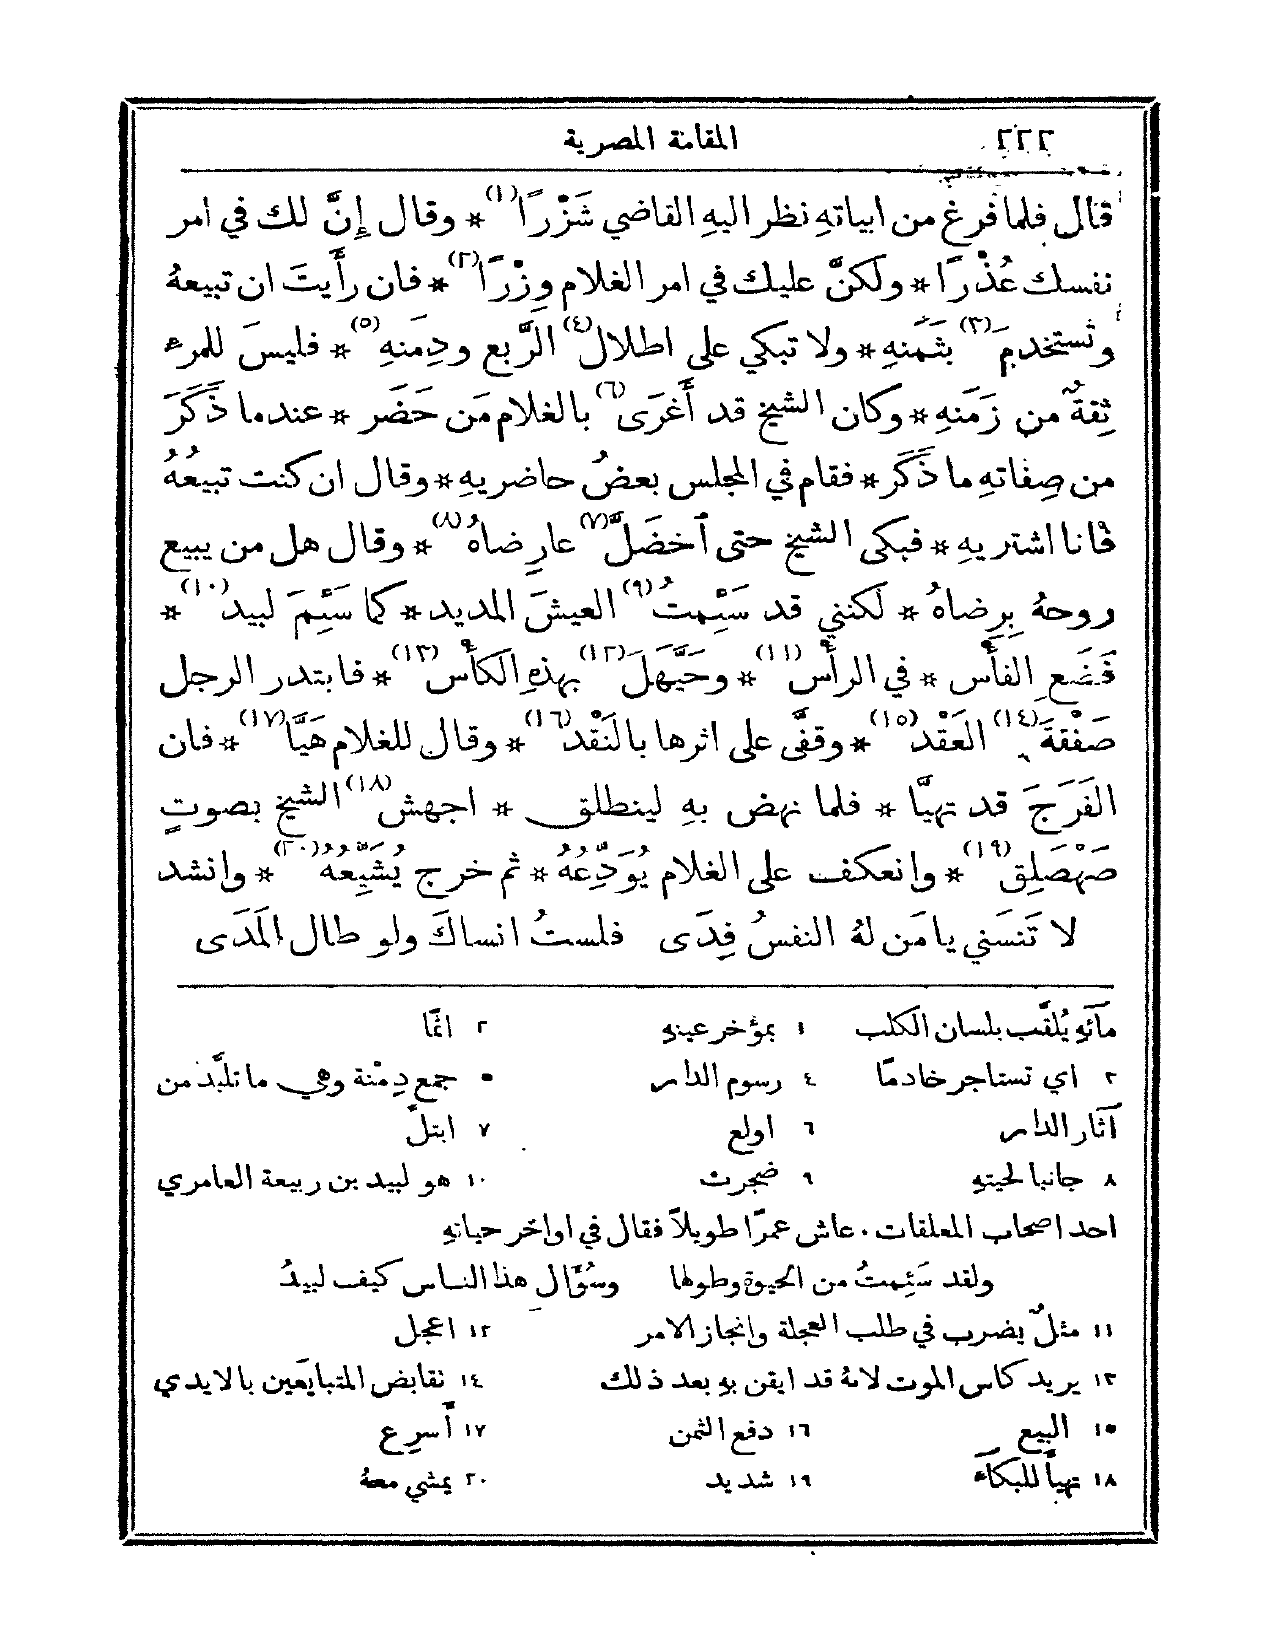 ٢٢٢ المقامة المصرية
قال فلما فرغ من ابياتهِ نظر اليهِ القاضي شَزْرًا(١) * وقال إِنَّ لك في امر
نفسك عُذْرًا * ولكنَّ عليك في امر الغلام وِزْرًا(٢) * فان رأَيتَ ان تبيعهُ
وتستخدم(٣) بثَمَنهِ * ولا تبكي على اطلال(٤) الرَّبع ودِمَنهِ(٥) * فليسَ للمرء
ثِقةٌ من زَمَنهِ * وكان الشيخ قد أَغرَى(٦) بالغلام مَن حَضَر * عندما ذَكَرَ
من صِفاتهِ ما ذَكَر * فقام في المجلس بعضُ حاضريهِ * وقال ان كنت تبيعُهُ
فانا اشتريهِ * فبكى الشيخ حتى اَخضَلَّ(٧) عارِضاهُ(٨) * وقال هل من يبيع
روحهُ بِرِضاهُ * لكنني قد سَئِمتُ(٩) العيشَ المديد * كما سَئِمَ لبيد(١٠) *
فَضَعِ الفأْس * في الرأْس(١١) * وحَيَّهَل(١٢) بهذهِ الكأْس(١٣) * فابتدر الرجل
صَفْقةَ(١٤) العَقْد(١٥) * وقفَّى على اثرها بالنَقْد(١٦) * وقال للغلام هَيَّا(١٧) * فان
الفَرَجَ قد تهيَّا * فلما نهض بهِ لينطلق * اجهش(١٨) الشيخ بصوتٍ
صَهْصَلِق(١٩) * وانعكف على الغلام يُوَدِّعهُ * ثم خرج يُشَيِّعهُ(٢٠) * وانشد
لا تَنسَني يا مَن لهُ النفسُ فِدَى فلستُ انساكَ ولو طال المَدَى
مآئهِ يُلقَّب بلسان الكلب ١ بمؤخر عينهِ ٢ اثمًا
٣ اي تستاجر خادمًا ٤ رسوم الدار ٥ جمع دِمْنة وهي ما تلبَّد من
آثار الدار ٦ اولع ٧ ابتلَّ
٨ جانبا لحيتهِ ٩ ضجرت ١٠ هو لبيد بن ربيعة العامري
احد اصحاب المعلقات. عاش عمرًا طويلاً فقال في اواخر حياتهِ
ولقد سَئِمتُ من الحيوة وطولها وسُؤَال هذا الناس كيف لبيدُ
١١ مثلٌ يضرب في طلب العجلة وانجاز الامر ١٢ اعجل
١٣ يريد كاس الموت لانهُ قد ايقن بهِ بعد ذلك ١٤ تقابض المتبايعَين بالايدي
١٥ البيع ١٦ دفع الثمن ١٧ أَسرِع
١٨ تهيأَ للبكآء ١٩ شديد ٢٠ يمشي معهُ